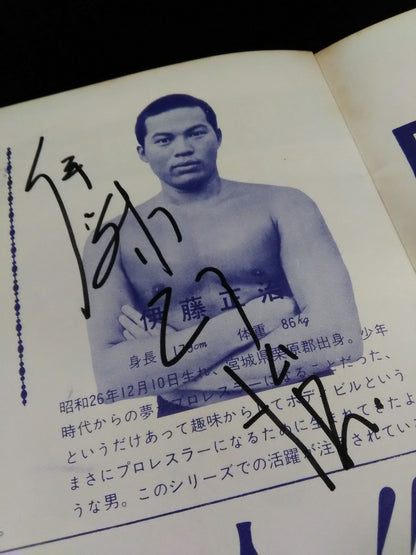 伊藤正治
身長 体重 86kg
昭和26年12月10日生れ、宮城県栗原郡出身。少年
時代からの夢がプロレスラーになることだった、
というだけあって趣味からしてボディビルという
まさにプロレスラーになるために生まれてきたよ
うな男。このシリーズでの活躍が注目されてい